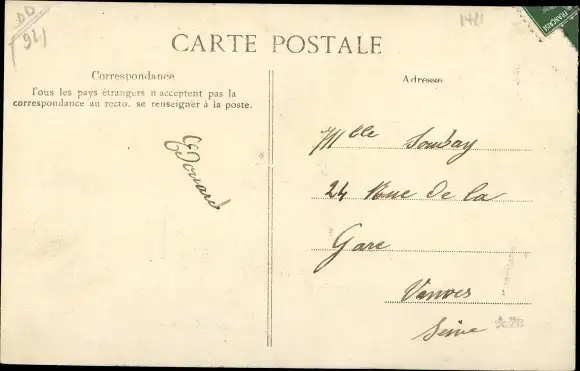 DD
921
1421
FRANÇAISE
CARTE POSTALE
Correspondance
Tous les pays étrangers n'acceptent pas la
correspondance au recto. se renseigner à la poste.
Edouard
Adresse
Mlle Soubay
24 Rue de la
Gare
Vanves
Seine